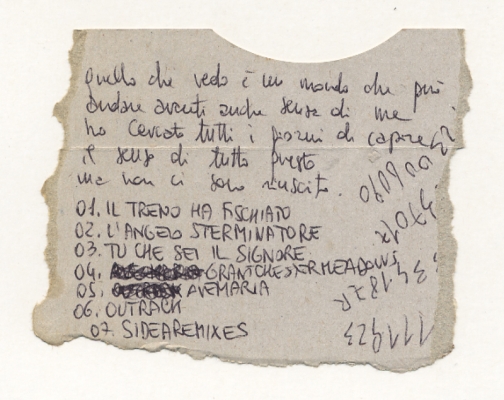 quello che vedo è un mondo che può
andare avanti anche senza di me
ho cercato tutti i giorni di capire
il senso di tutto questo
ma non ci sono riuscito.
01. IL TRENO HA FISCHIATO
02. L'ANGELO STERMINATORE
03. TU CHE SEI IL SIGNORE
04. GRANTCHESTERMEADOWS
05. AVEMARIA
06. OUTRACK
07. SIDEAREMIXES
111923